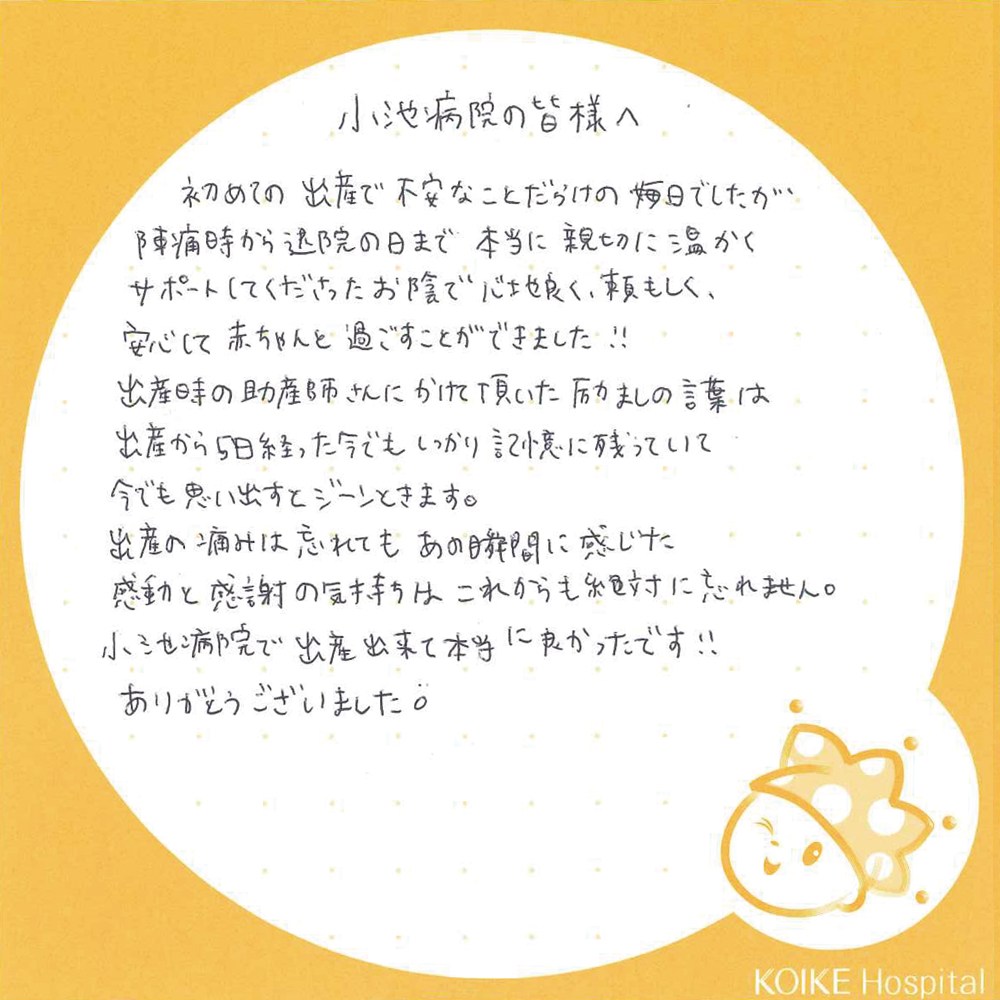 小池病院の皆様へ
初めての出産で不安なことだらけの毎日でしたが
陣痛時から退院の日まで本当に親切に温かく
サポートしてくださったお陰で心地良く、頼もしく、
安心して赤ちゃんと過ごすことができました!!
出産時の助産師さんにかけて頂いた励ましの言葉は
出産から5日経った今でもしっかり記憶に残っていて
今でも思い出すとジーンときます。
出産の痛みは忘れてもあの瞬間に感じた
感動と感謝の気持ちはこれからも絶対に忘れません。
小池病院で出産出来て本当に良かったです!!
ありがとうございました。
KOIKE Hospital